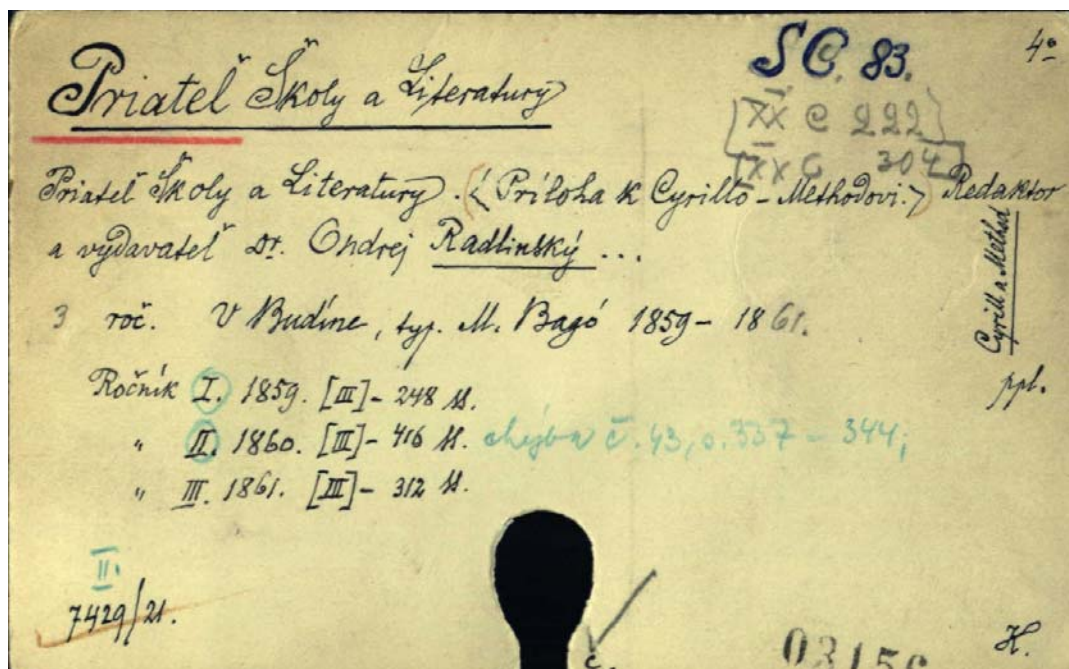 Priateľ Školy a Literatury
SC. 83.
4°
XX C 222
XX C 304
Priateľ Školy a Literatury. <Príloha k Cyrillo-Methodovi.> Redaktor
a vydavateľ Dr. Ondrej Radlinský ...
Cyrill a Method
3 roč. V Budíne, typ. M. Bagó 1859-1861.
ppl.
Ročník I. 1859. [III]- 248 ss.
" II. 1860. [III]- 416 ss. chýba č. 43, s. 337 - 344;
" III. 1861. [III]- 312 ss.
II.
7429/21.
H.